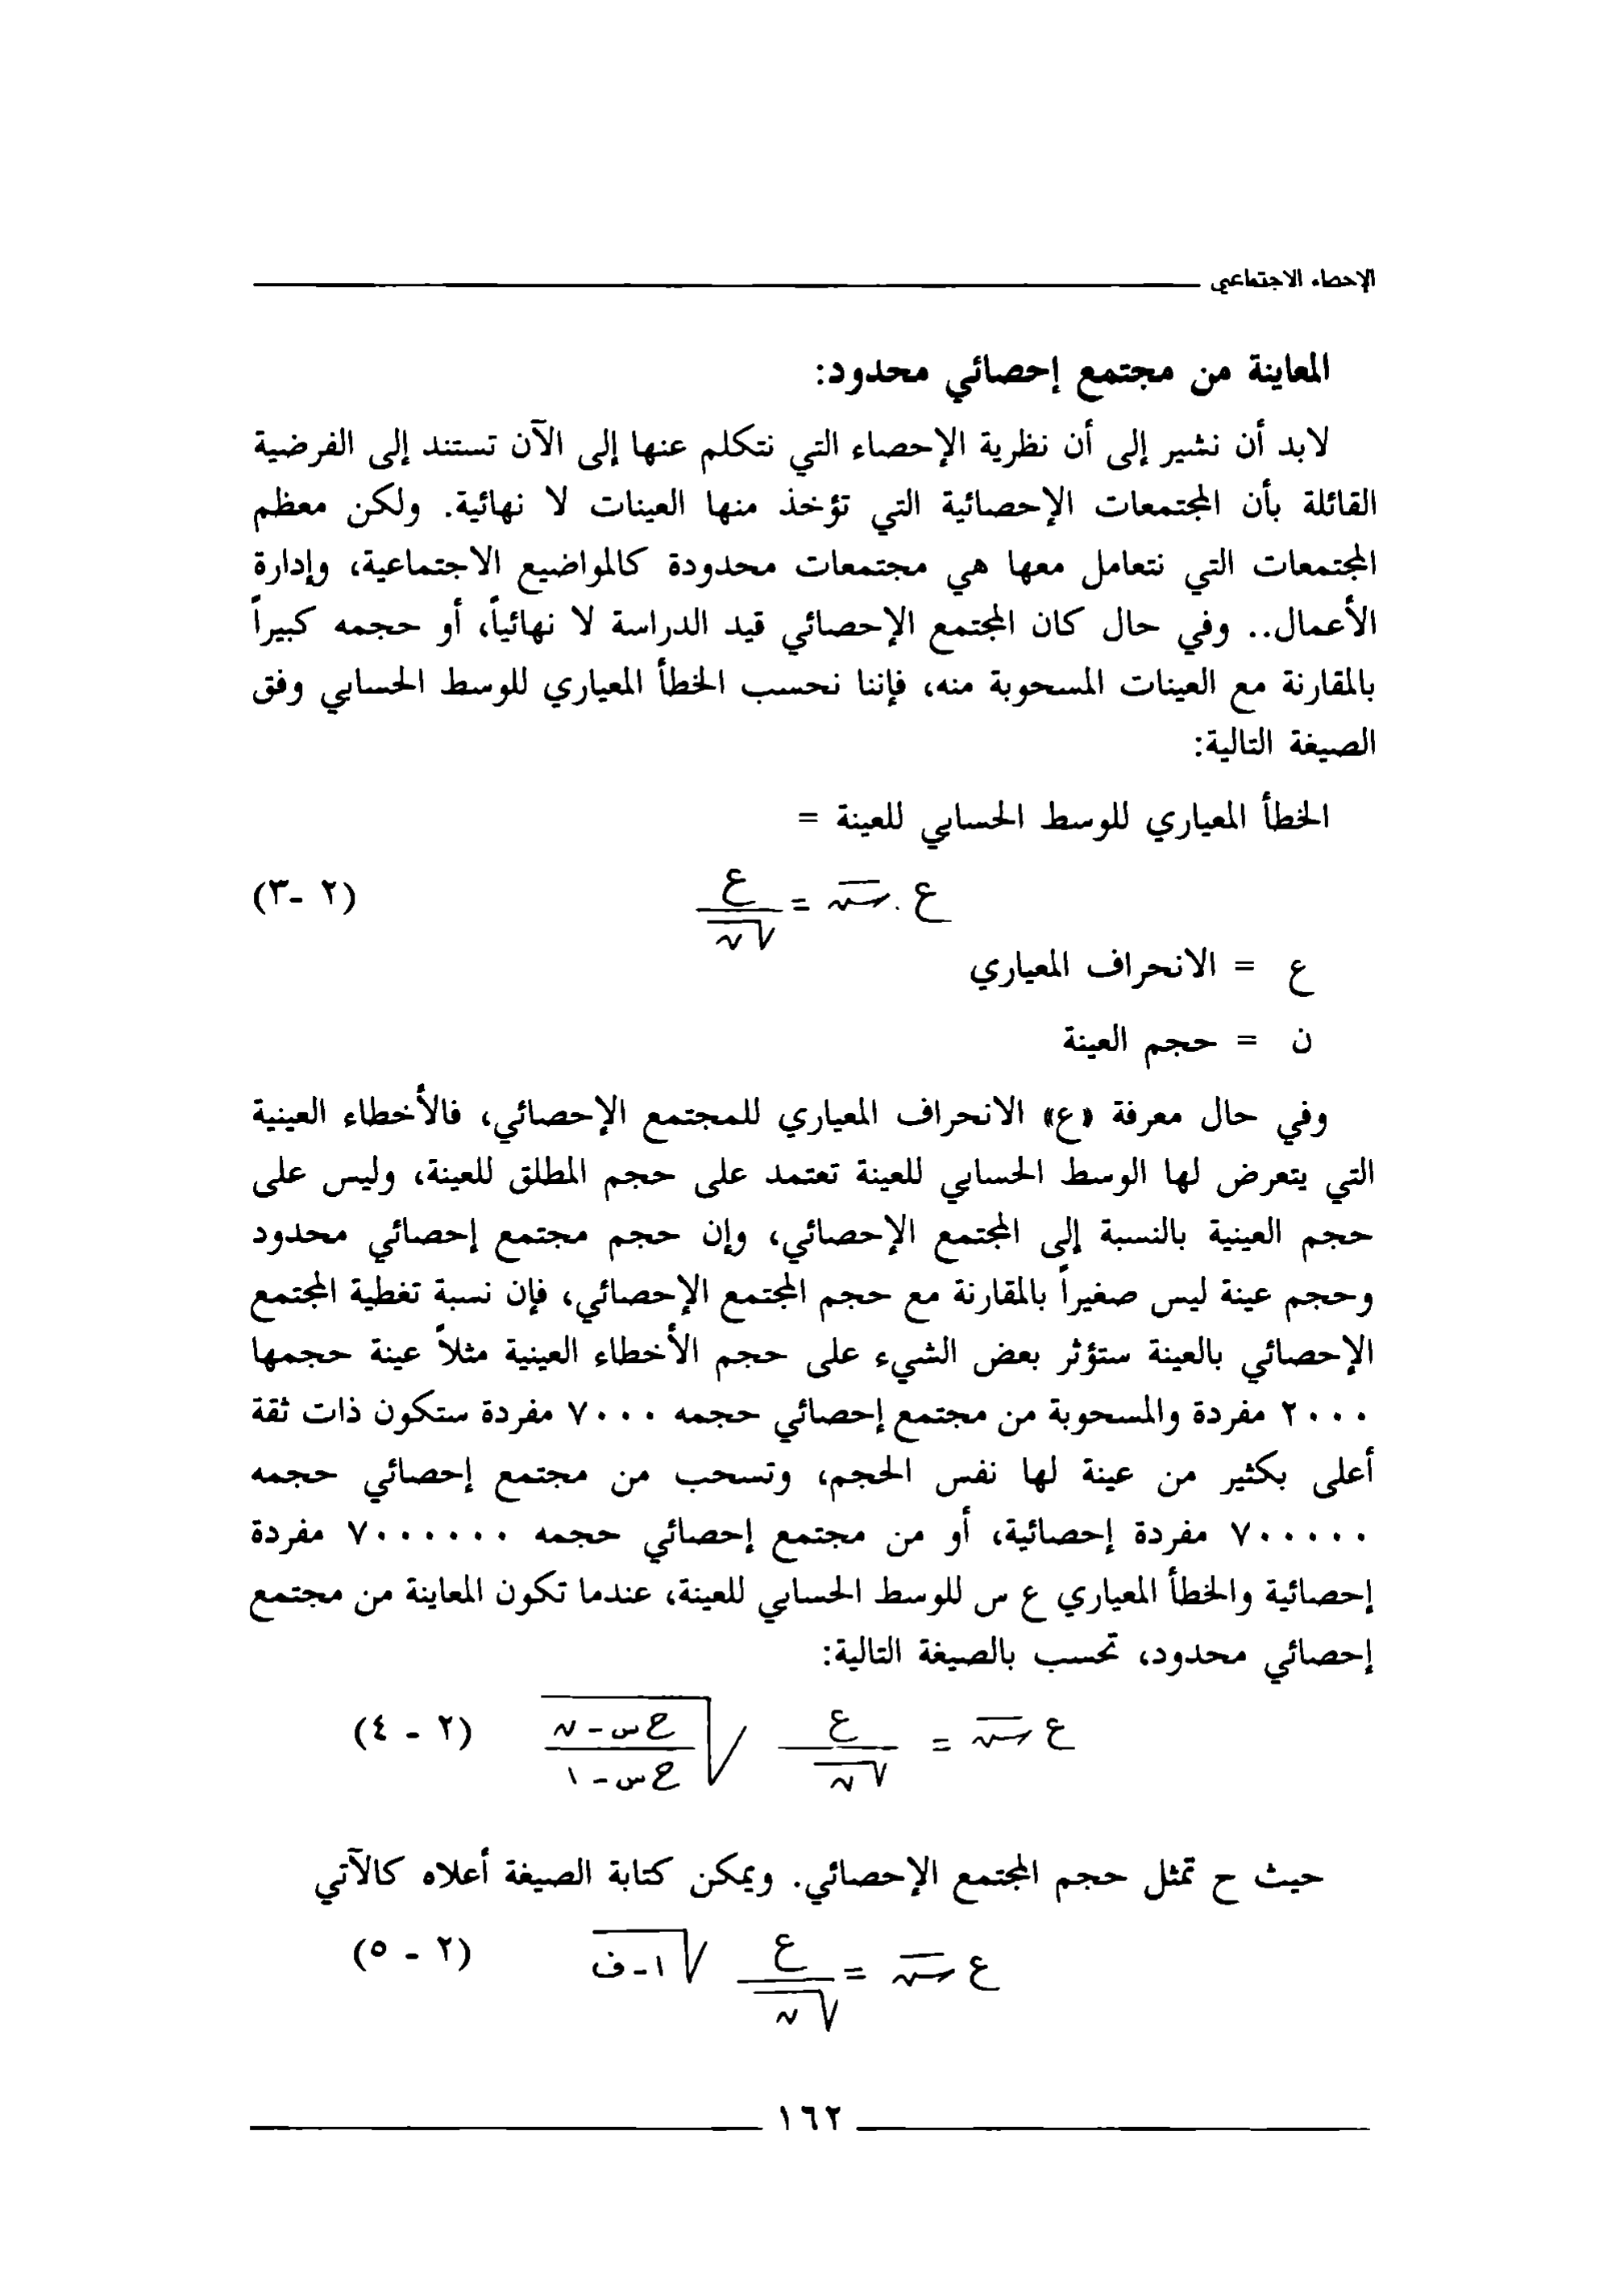 الإحصاء الاجتماعي
المعاينة من مجتمع إحصائي محدود:
لابد أن نشير إلى أن نظرية الإحصاء التي نتكلم عنها إلى الآن تستند إلى الفرضية
القائلة بأن المجتمعات الإحصائية التي تؤخذ منها العينات لا نهائية. ولكن معظم
المجتمعات التي نتعامل معها هي مجتمعات محدودة كالمواضيع الاجتماعية، وإدارة
الأعمال.. وفي حال كان المجتمع الإحصائي قيد الدراسة لا نهائياً، أو حجمه كبيراً
بالمقارنة مع العينات المسحوبة منه، فإننا نحسب الخطأ المعياري للوسط الحسابي وفق
الصيغة التالية:
الخطأ المعياري للوسط الحسابي للعينة =
ع . س̅ = ع / √ن (٢ -٣)
ع = الانحراف المعياري
ن = حجم العينة
وفي حال معرفة «ع» الانحراف المعياري للمجتمع الإحصائي، فالأخطاء العينية
التي يتعرض لها الوسط الحسابي للعينة تعتمد على حجم المطلق للعينة، وليس على
حجم العينية بالنسبة إلى المجتمع الإحصائي، وإن حجم مجتمع إحصائي محدود
وحجم عينة ليس صغيراً بالمقارنة مع حجم المجتمع الإحصائي، فإن نسبة تغطية المجتمع
الإحصائي بالعينة ستؤثر بعض الشيء على حجم الأخطاء العينية مثلاً عينة حجمها
٢٠٠٠ مفردة والمسحوبة من مجتمع إحصائي حجمه ٧٠٠٠ مفردة ستكون ذات ثقة
أعلى بكثير من عينة لها نفس الحجم، وتسحب من مجتمع إحصائي حجمه
٧٠٠٠٠٠ مفردة إحصائية، أو من مجتمع إحصائي حجمه ٧٠٠٠٠٠٠ مفردة
إحصائية والخطأ المعياري ع س للوسط الحسابي للعينة، عندما تكون المعاينة من مجتمع
إحصائي محدود، تحسب بالصيغة التالية:
ع س̅ = ع / √ن √(ح س - ن / ح س - ١) (٢ - ٤)
حيث ح تمثل حجم المجتمع الإحصائي. ويمكن كتابة الصيغة أعلاه كالآتي
ع س̅ = ع / √ن √(١ - ف) (٢ - ٥)
١٦٢